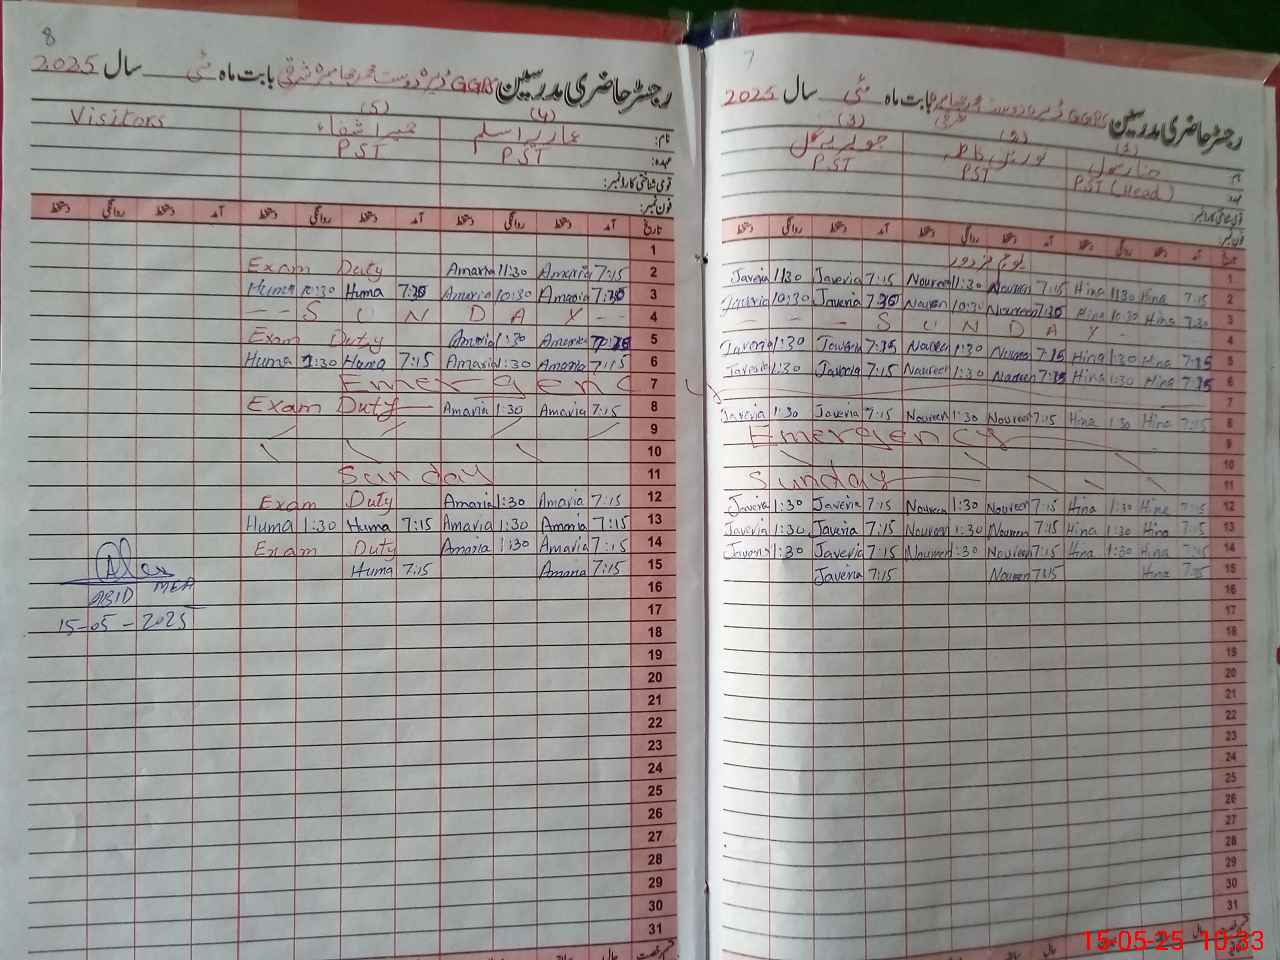 8
رجسٹر حاضری مدرسین GGPS ڈیرہ دوست محمد بابت ماہ مئی سال 2025
(4) (5) Visitors
نام:
PST PST
عہدہ:
قومی شناختی کارڈ نمبر:
فون نمبر:
تاریخ آمد دستخط روانگی دستخط آمد دستخط روانگی دستخط آمد دستخط روانگی دستخط
1
Exam Duty Amaria 11:30 Amaria 7:15 2
Huma 10:30 Huma 7:30 Amaria 10:30 Amaria 7:30 3
- - S U N D A Y - - 4
Exam Duty Amaria 1:30 Amaria 7:15 5
Huma 1:30 Huma 7:15 Amaria 1:30 Amaria 7:15 6
Emergenc 7
Exam Duty Amaria 1:30 Amaria 7:15 8
9
10
Sunday 11
Exam Duty Amaria 1:30 Amaria 7:15 12
Huma 1:30 Huma 7:15 Amaria 1:30 Amaria 7:15 13
Exam Duty Amaria 1:30 Amaria 7:15 14
Huma 7:15 Amaria 7:15 15
ABID MEA 16
15-05-2025 17
18
19
20
21
22
23
24
25
26
27
28
29
30
31
7
رجسٹر حاضری مدرسین GGPS بابت ماہ مئی سال 2025
(1) (2) (3)
PST (Head) PST PST
تاریخ آمد دستخط روانگی دستخط آمد دستخط روانگی دستخط آمد دستخط روانگی دستخط
یوم مزدور 1
Javeria 11:30 Javeria 7:15 Noureen 11:30 Noureen 7:15 Hina 11:30 Hina 7:15 2
Javeria 10:30 Javeria 7:30 Noureen 10:30 Noureen 7:30 Hina 10:30 Hina 7:30 3
- - - S U N D A Y -
Javeria 1:30 Javeria 7:15 Noureen 1:30 Noureen 7:15 Hina 1:30 Hina 7:15 5
Javeria 1:30 Javeria 7:15 Noureen 1:30 Noureen 7:15 Hina 1:30 Hina 7:15 6
y 7
Javeria 1:30 Javeria 7:15 Noureen 1:30 Noureen 7:15 Hina 1:30 Hina 7:15 8
Emergency 9
10
Sunday 11
Javeria 1:30 Javeria 7:15 Noureen 1:30 Noureen 7:15 Hina 1:30 Hina 7:15 12
Javeria 1:30 Javeria 7:15 Noureen 1:30 Noureen 7:15 Hina 1:30 Hina 7:15 13
Javeria 1:30 Javeria 7:15 Noureen 1:30 Noureen 7:15 Hina 1:30 Hina 7:15 14
Javeria 7:15 Noureen 7:15 Hina 7:15 15
16
17
18
19
20
21
22
23
24
25
26
27
28
29
30
31
15-05-25 10:33